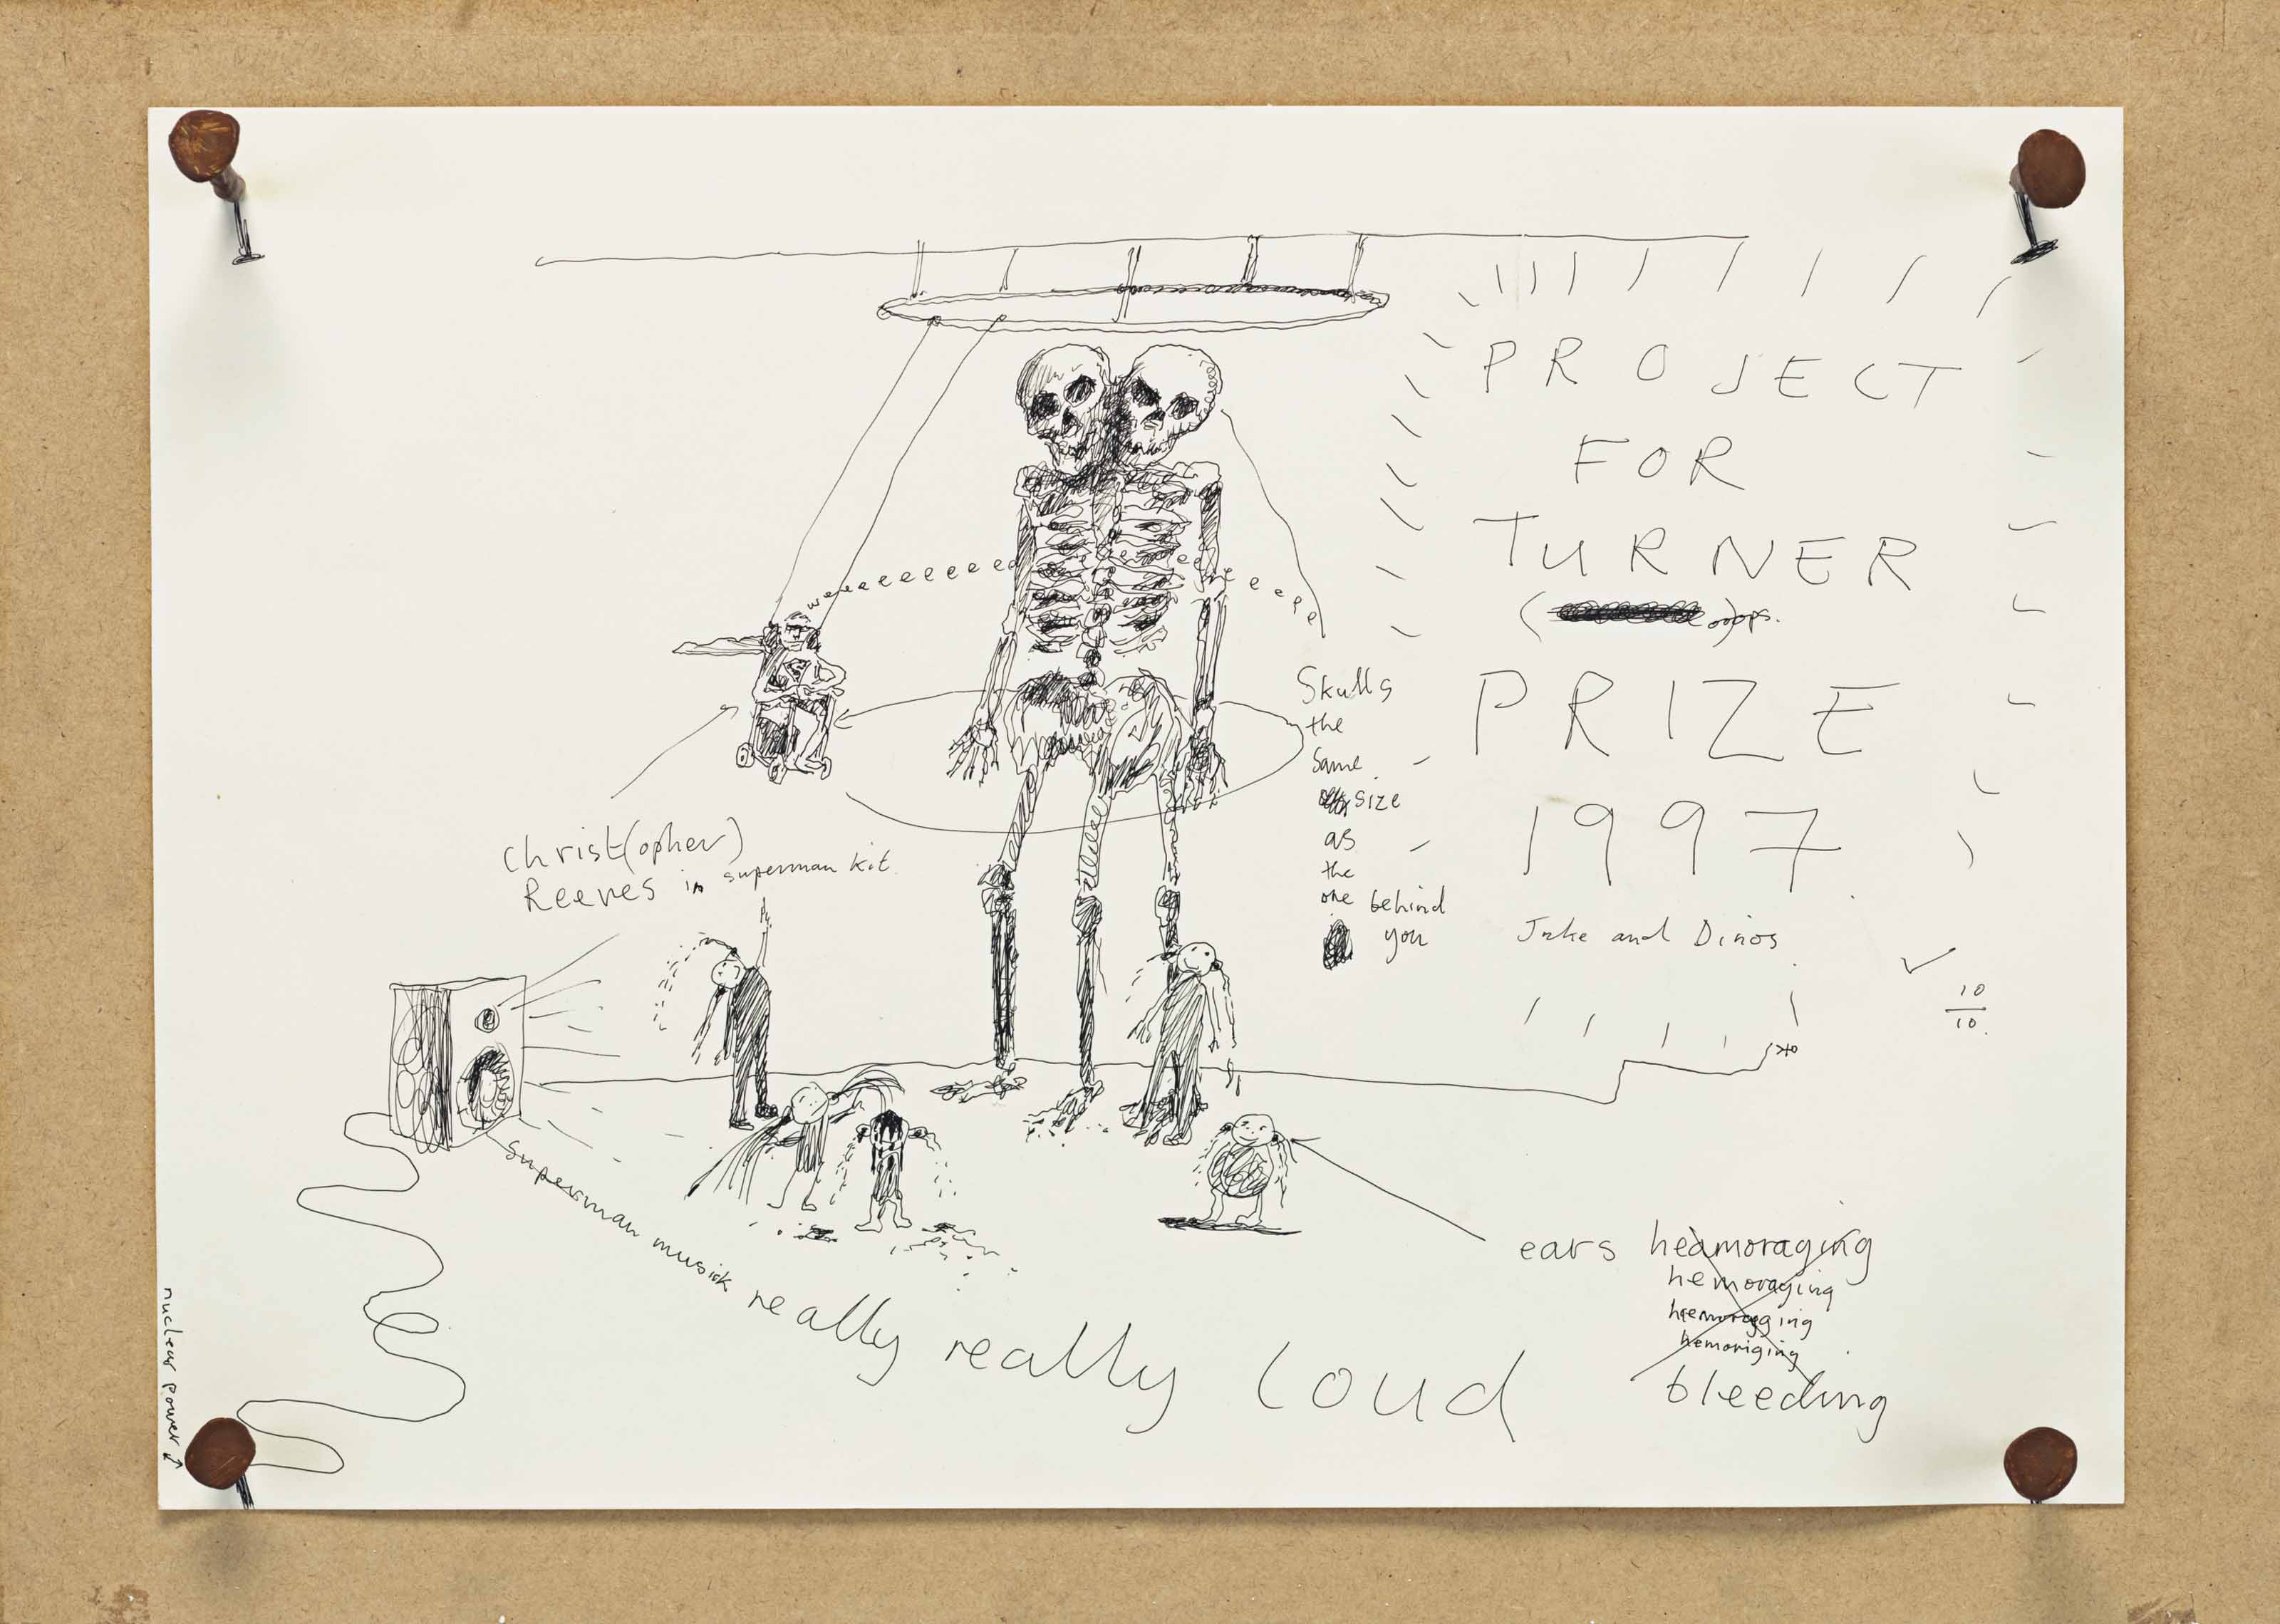 PROJECT
FOR
TURNER
( ) ooops.
PRIZE
1997
Jake and Dinos
10
10.
Skulls
the
same
size
as
the
one behind
you
weeeeeeeeeeee
Christ(opher)
Reeves in superman kit.
superman musick really really loud
nuclear power
ears heamoraging
hemoraging
hemoragging
hemoriging
bleeding